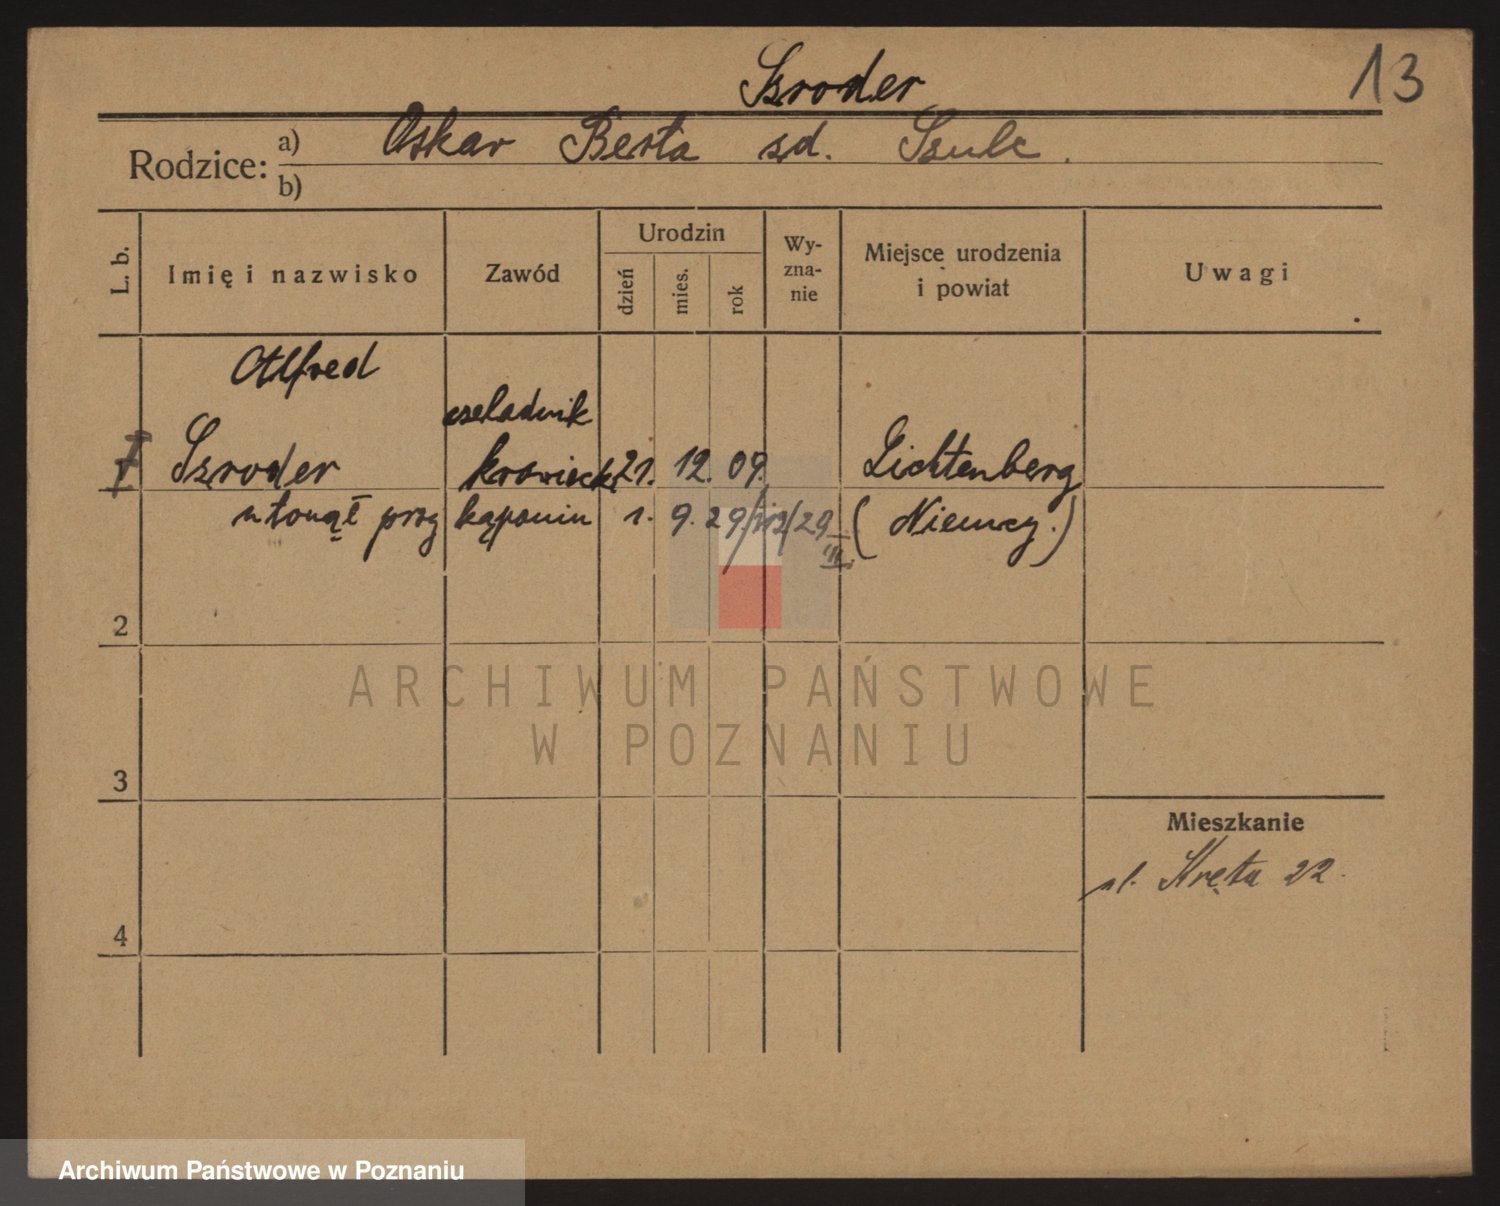 13
Szroder
Rodzice:
a) Oskar Berta zd. Szulc.
b)
L. b.
Imię i nazwisko
Zawód
Urodzin
dzień
mies.
rok
Wy-
zna-
nie
Miejsce urodzenia
i powiat
Uwagi
Alfred
czeladnik
Szroder krawiecki 21. 12. 09. Lichtenberg
utonął przy kąpaniu 1. 9. 29 (Niemcy.)
2
3
4
Mieszkanie
ul. Kręta 22.
ARCHIWUM PAŃSTWOWE
W POZNANIU
Archiwum Państwowe w Poznaniu